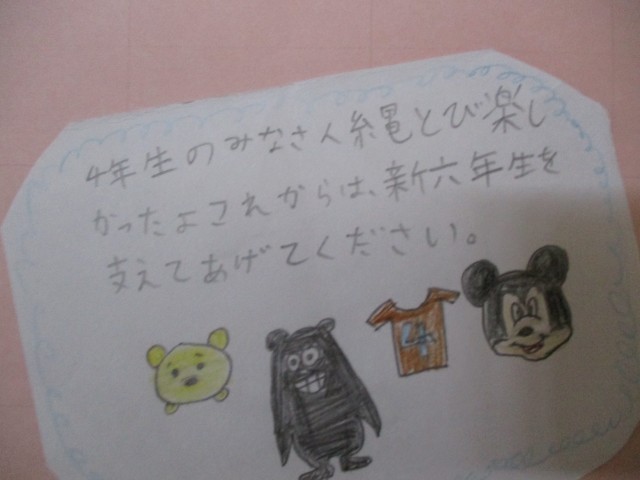 4年生のみなさん縄とび楽し
かったよこれからは、新六年生を
支えてあげてください。
4